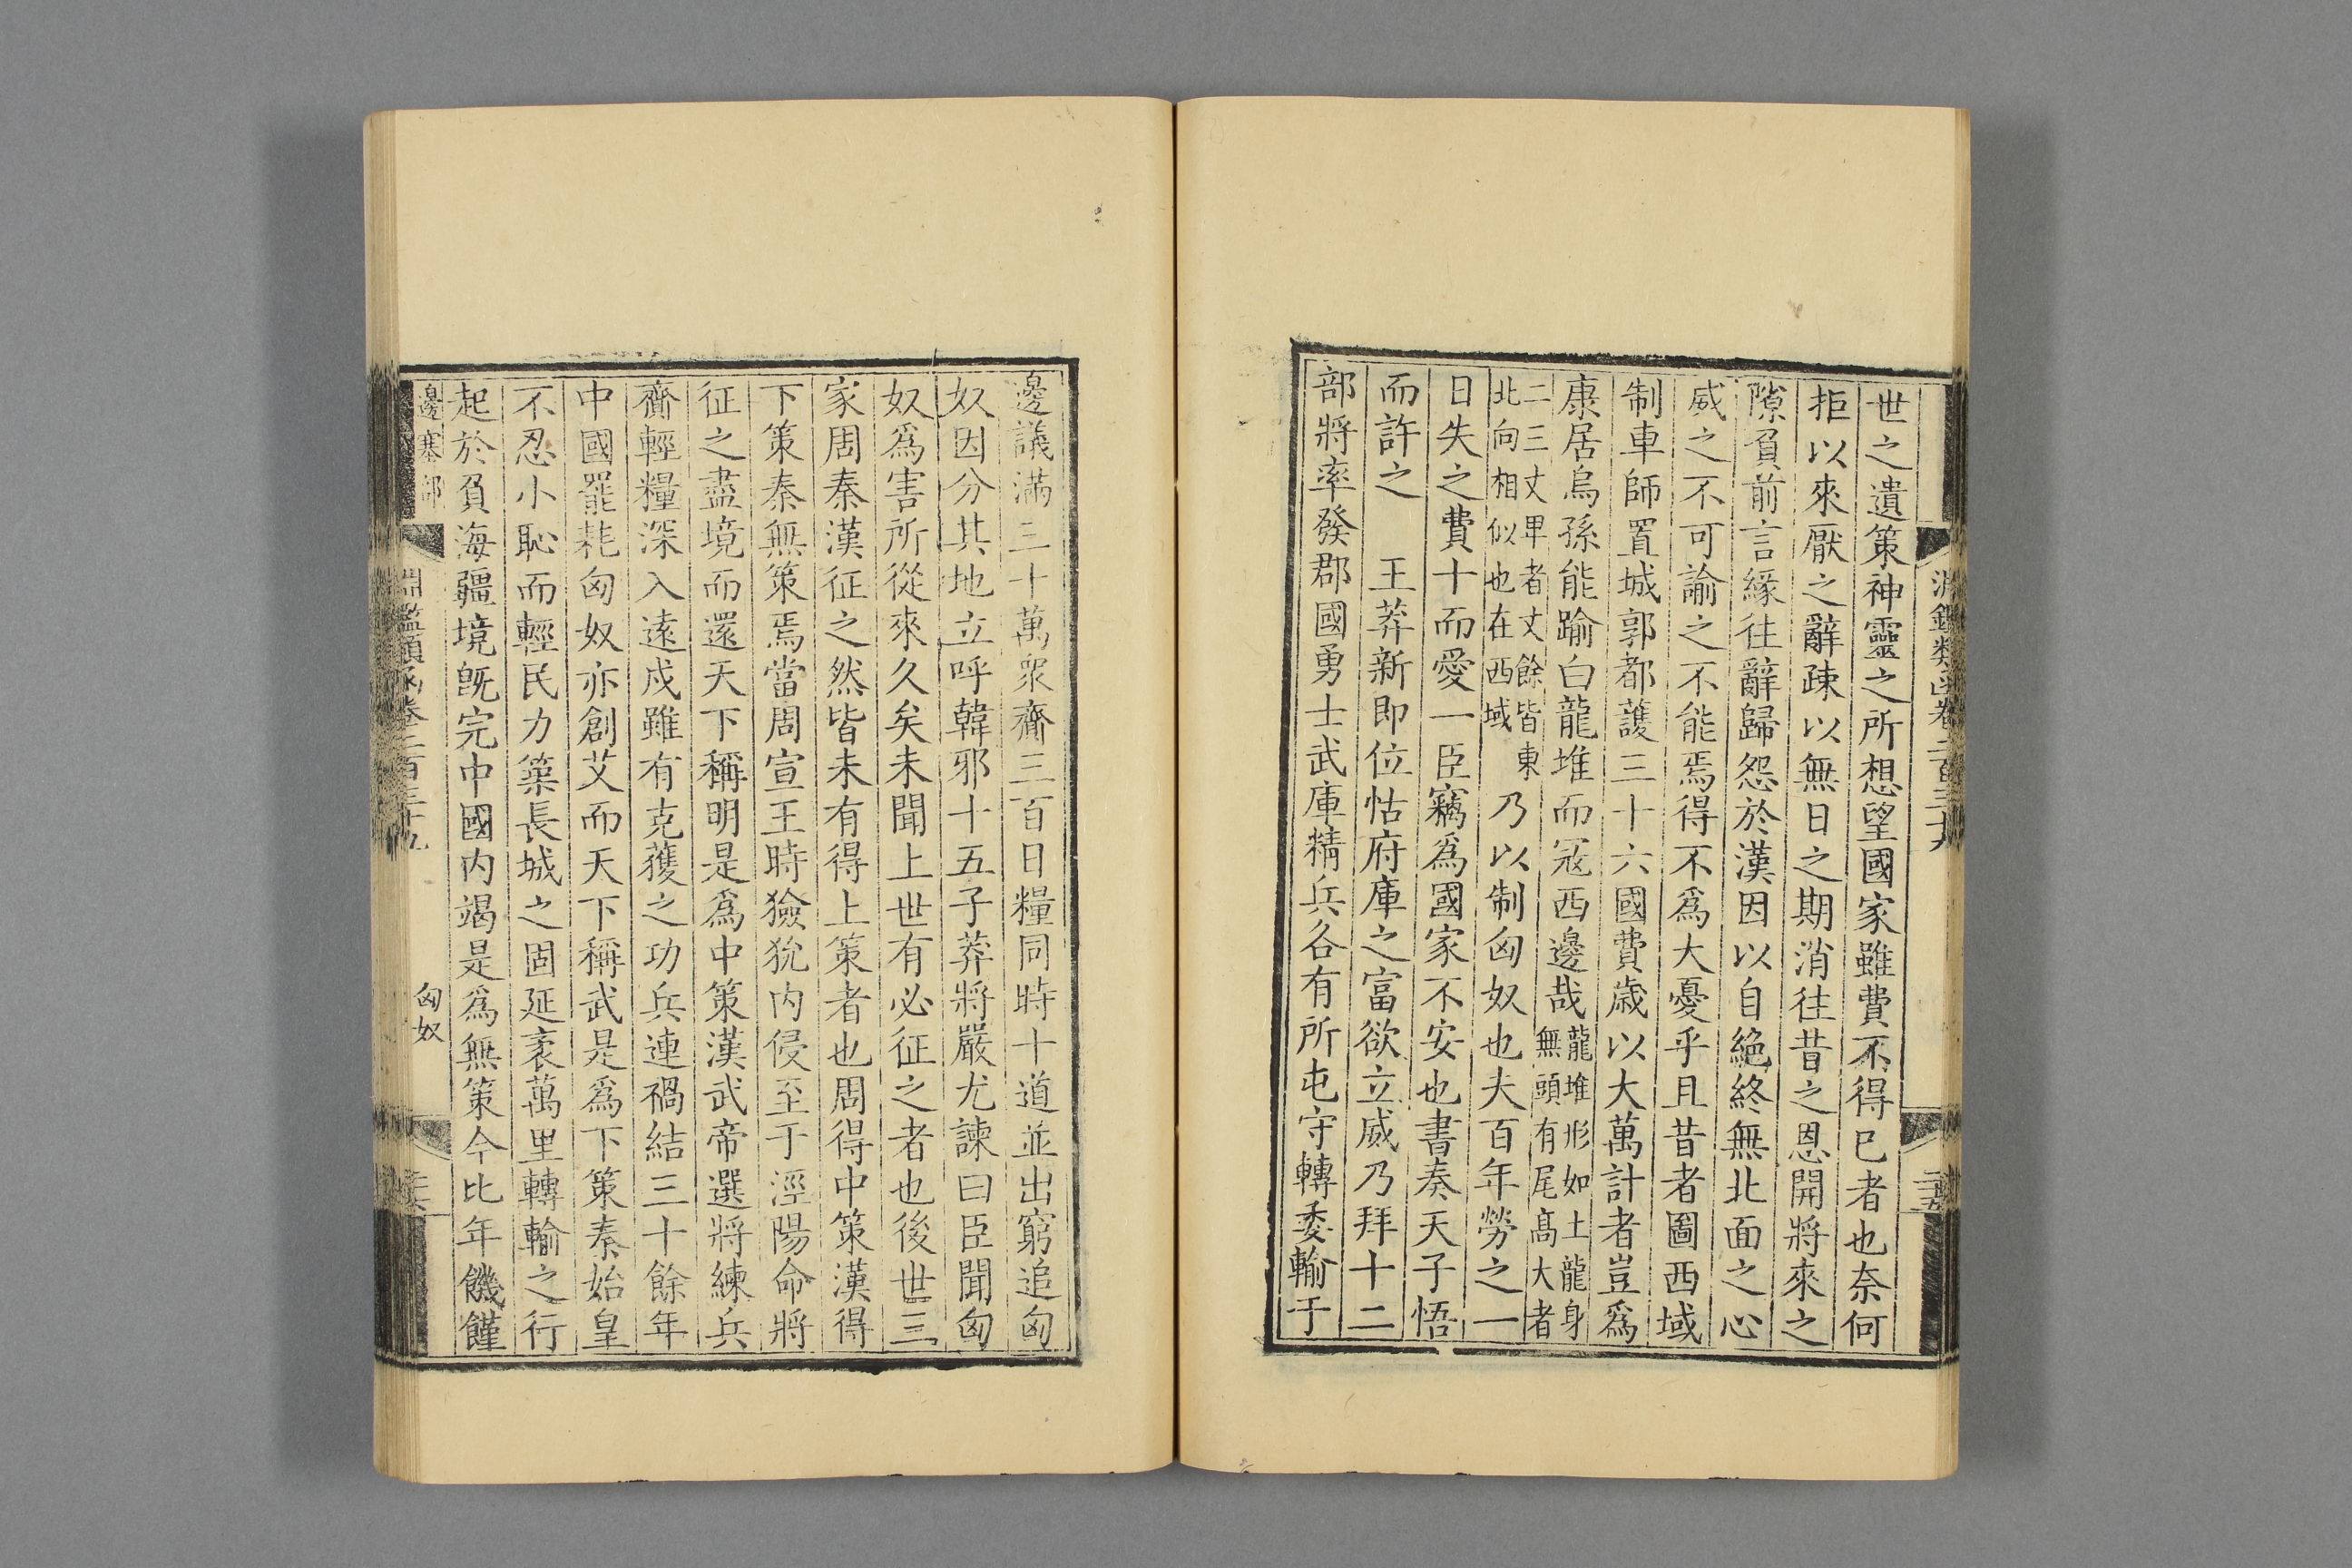 淵鑑類函卷二百三十九
二十五
世之遺策神靈之所想望國家雖費不得已者也奈何
拒以來厭之辭疎以無日之期消往昔之恩開將來之
隙負前言緣往辭歸怨於漢因以自絕終無北面之心
威之不可諭之不能焉得不爲大憂乎且昔者圖西域
制車師置城郭都護三十六國費歲以大萬計者豈爲
康居烏孫能踰白龍堆而冦西邊哉龍堆形如土龍身
無頭有尾高大者
二三丈卑者丈餘皆東
北向相似也在西域乃以制匈奴也夫百年勞之一
日失之費十而愛一臣竊爲國家不安也書奏天子悟
而許之 王莽新即位怙府庫之富欲立威乃拜十二
部將率發郡國勇士武庫精兵各有所屯守轉委輸于
邊議滿三十萬衆齎三百日糧同時十道並出窮追匈
奴因分其地立呼韓邪十五子莽將嚴尤諫曰臣聞匈
奴爲害所從來久矣未聞上世有必征之者也後世三
家周秦漢征之然皆未有得上策者也周得中策漢得
下策秦無策焉當周宣王時獫狁内侵至于涇陽命將
征之盡境而還天下稱明是爲中策漢武帝選將練兵
齎輕糧深入遠戍雖有克獲之功兵連禍結三十餘年
中國罷耗匈奴亦創艾而天下稱武是爲下策秦始皇
不忍小恥而輕民力築長城之固延袤萬里轉輸之行
起於負海疆境旣完中國内竭是爲無策今比年饑饉
邊塞部
淵鑑類函卷二百三十九
匈奴
二十六